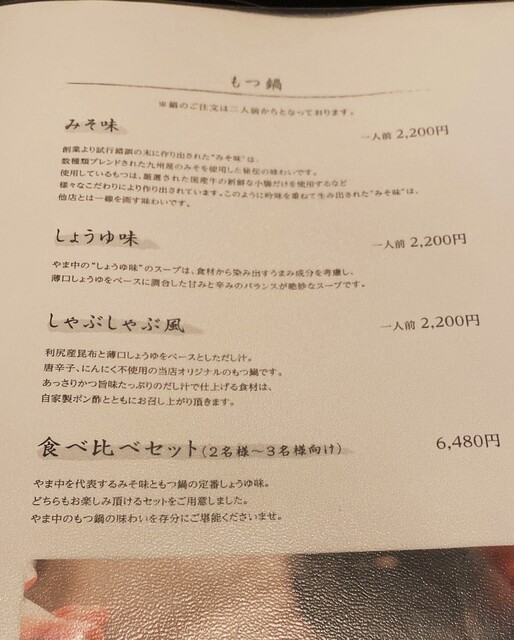 もつ鍋
※鍋のご注文は二人前からとなっております。
みそ味
一人前 2,200円
創業より試行錯誤の末に作り出された"みそ味"は、
数種類ブレンドされた九州産のみそを使用した秘伝の味わいです。
使用しているもつは、厳選された国産牛の新鮮な小腸だけを使用するなど
様々なこだわりにより作り出されています。このように吟味を重ねて生み出された"みそ味"は、
他店とは一線を画す味わいです。
しょうゆ味
一人前 2,200円
やま中の"しょうゆ味"のスープは、食材から染み出すうまみ成分を考慮し、
薄口しょうゆをベースに調合した甘みと辛みのバランスが絶妙なスープです。
しゃぶしゃぶ風
一人前 2,200円
利尻産昆布と薄口しょうゆをベースとしただし汁。
唐辛子、にんにく不使用の当店オリジナルのもつ鍋です。
あっさりかつ旨味たっぷりのだし汁で仕上げる食材は、
自家製ポン酢とともにお召し上がり頂きます。
食べ比べセット(2名様〜3名様向け)
6,480円
やま中を代表するみそ味ともつ鍋の定番しょうゆ味。
どちらもお楽しみ頂けるセットをご用意しました。
やま中のもつ鍋の味わいを存分にご堪能くださいませ。